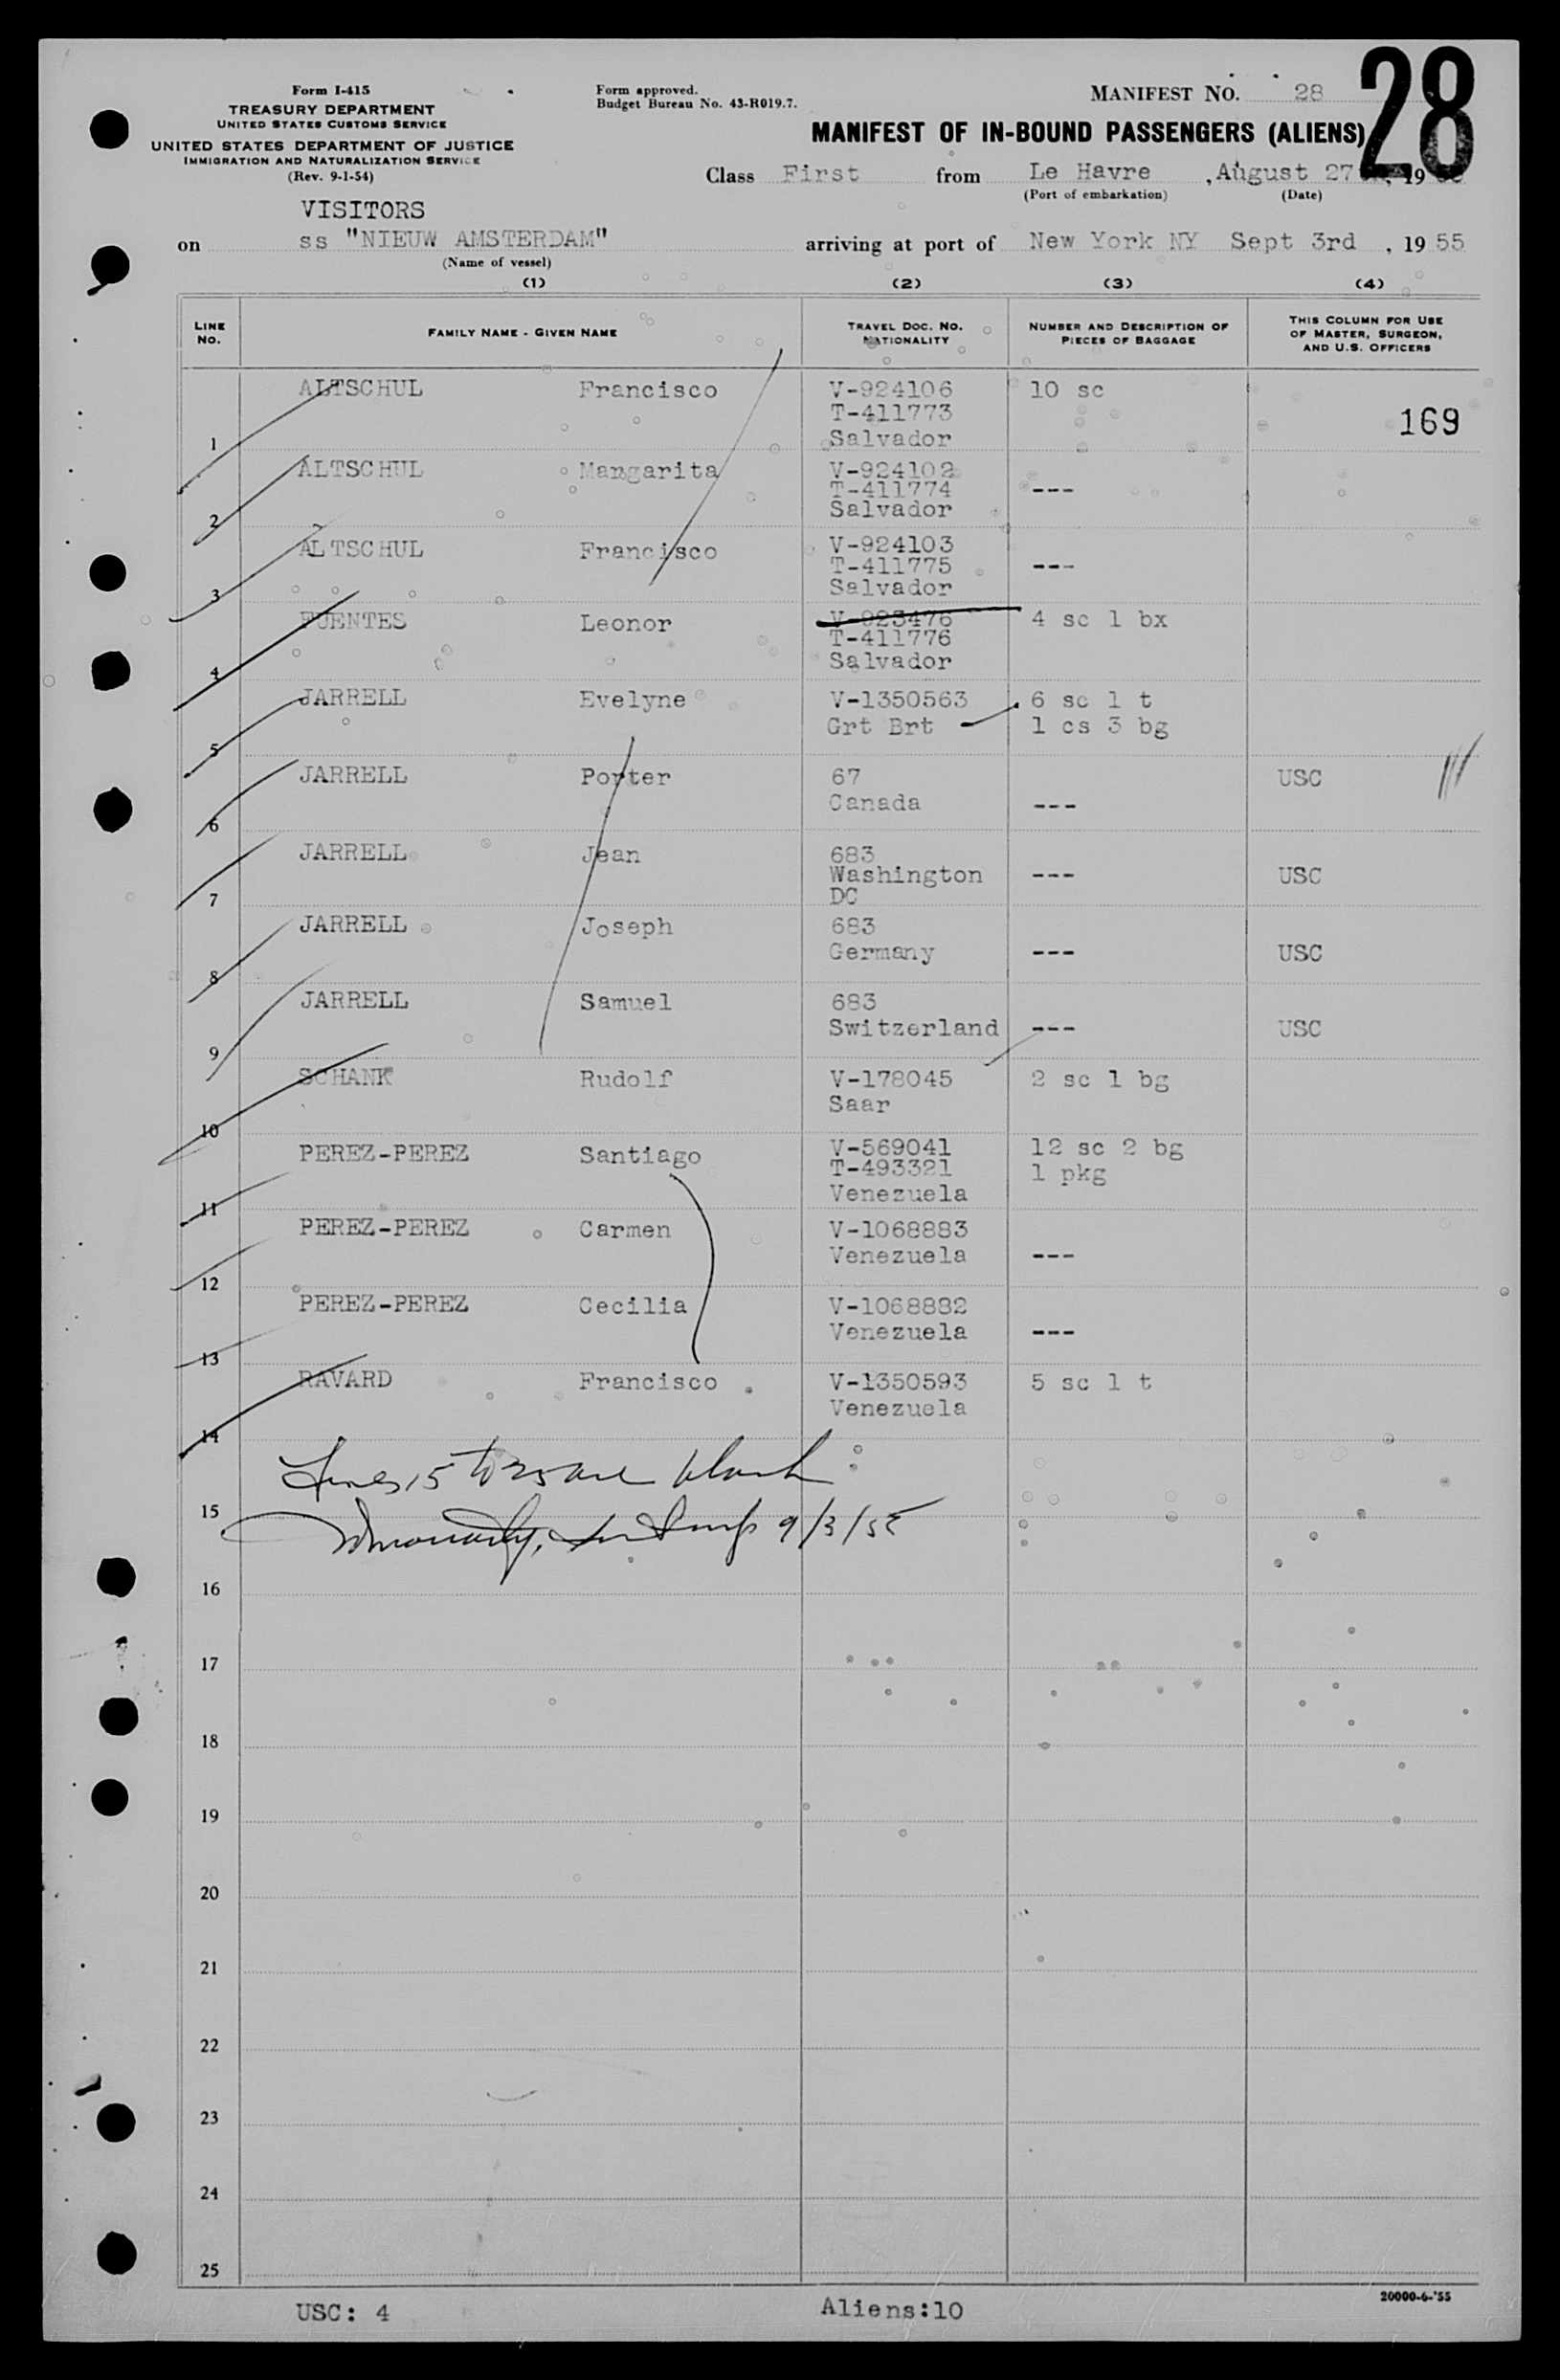 Form I-415
TREASURY DEPARTMENT
UNITED STATES CUSTOMS SERVICE
UNITED STATES DEPARTMENT OF JUSTICE
IMMIGRATION AND NATURALIZATION SERVICE
(Rev. 9-1-54)
Form approved.
Budget Bureau No. 43-R019.7.
MANIFEST NO. 28
28
MANIFEST OF IN-BOUND PASSENGERS (ALIENS)
Class First from Le Havre , August 27 , 19
(Port of embarkation) (Date)
VISITORS
on ss "NIEUW AMSTERDAM" arriving at port of New York NY Sept 3rd , 19 55
(Name of vessel)
(1) (2) (3) (4)
LINE NO. FAMILY NAME - GIVEN NAME TRAVEL DOC. NO. NATIONALITY NUMBER AND DESCRIPTION OF PIECES OF BAGGAGE THIS COLUMN FOR USE OF MASTER, SURGEON, AND U.S. OFFICERS
ALTSCHUL Francisco V-924106 10 sc
T-411773
169
1 Salvador
ALTSCHUL Margarita V-924102
T-411774 ---
2 Salvador
ALTSCHUL Francisco V-924103
T-411775 ---
3 Salvador
FUENTES Leonor V-923476 4 sc 1 bx
T-411776
4 Salvador
JARRELL Evelyne V-1350563 6 sc 1 t
5 Grt Brt 1 cs 3 bg
JARRELL Porter 67 USC
6 Canada ---
JARRELL Jean 683
Washington --- USC
7 DC
JARRELL Joseph 683
8 Germany --- USC
JARRELL Samuel 683
9 Switzerland --- USC
SCHANK Rudolf V-178045 2 sc 1 bg
10 Saar
PEREZ-PEREZ Santiago V-569041 12 sc 2 bg
T-493321 1 pkg
11 Venezuela
PEREZ-PEREZ Carmen V-1068883
12 Venezuela ---
PEREZ-PEREZ Cecilia V-1068882
13 Venezuela ---
RAVARD Francisco V-1350593 5 sc 1 t
14 Venezuela
Lines 15 to 25 are blank
15
9/3/55
16
17
18
19
20
21
22
23
24
25
20000-6-'55
USC: 4 Aliens:10